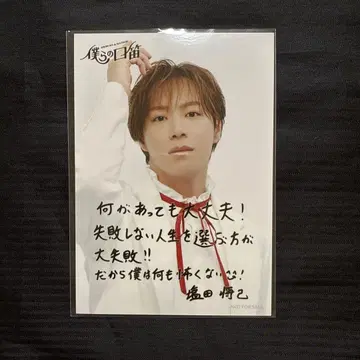 僕らの口笛
何があっても大丈夫！
失敗しない人生を選ぶ方が
大失敗!!
だから僕は何も怖くない^^!
塩田 将己